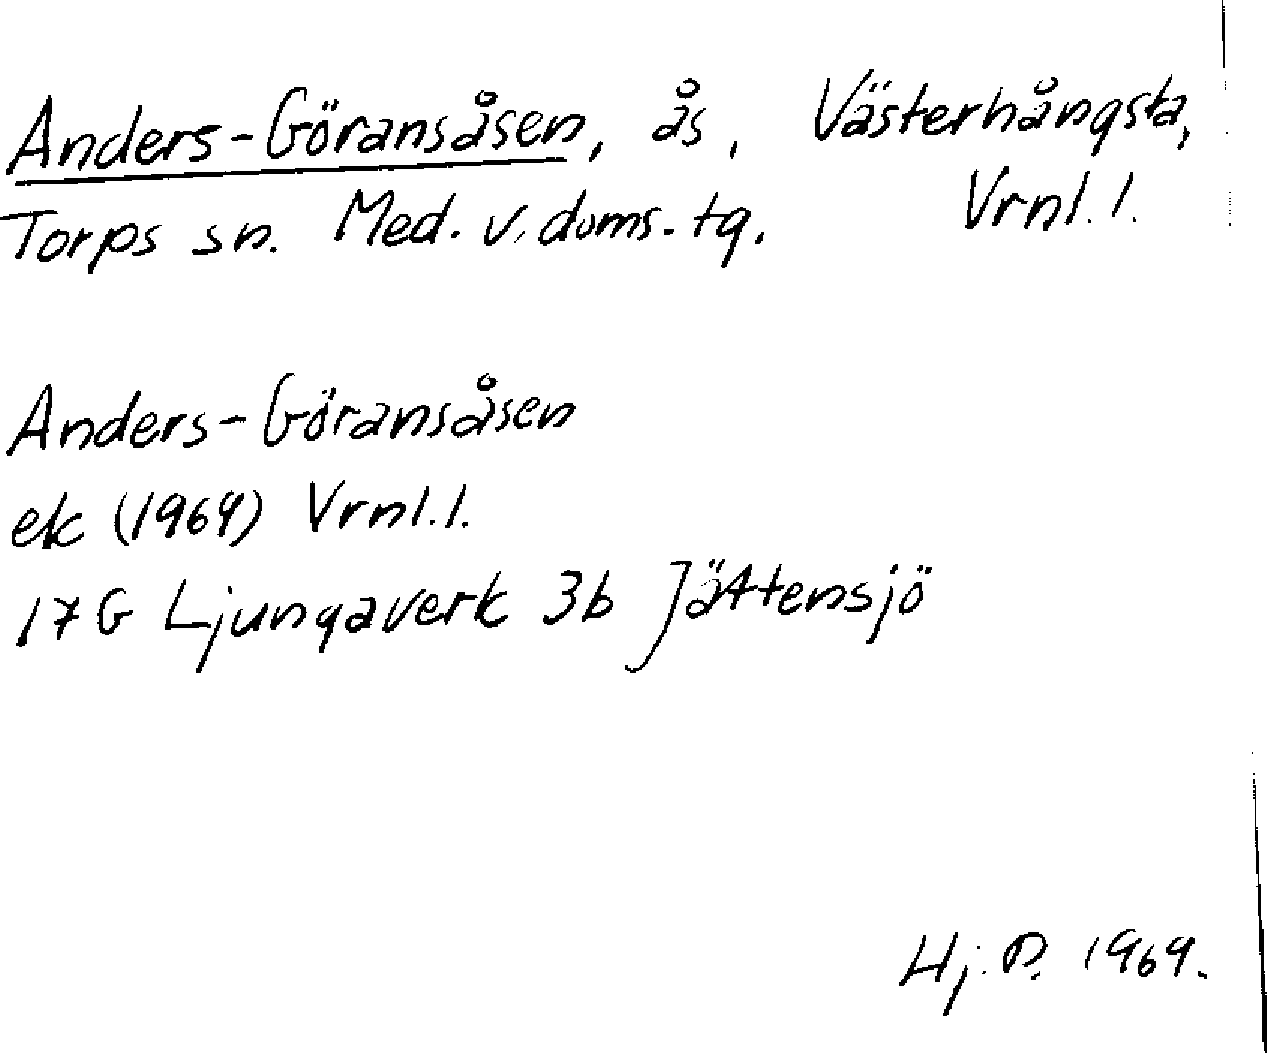 Anders-Göransåsen, ås, Västerhångsta,
Torps sn. Med. v. doms. tg. Vrnl. l.
Anders-Göransåsen
ek (1969) Vrnl. l.
17G Ljungaverk 3b Jättensjö
Hj. P. 1969.